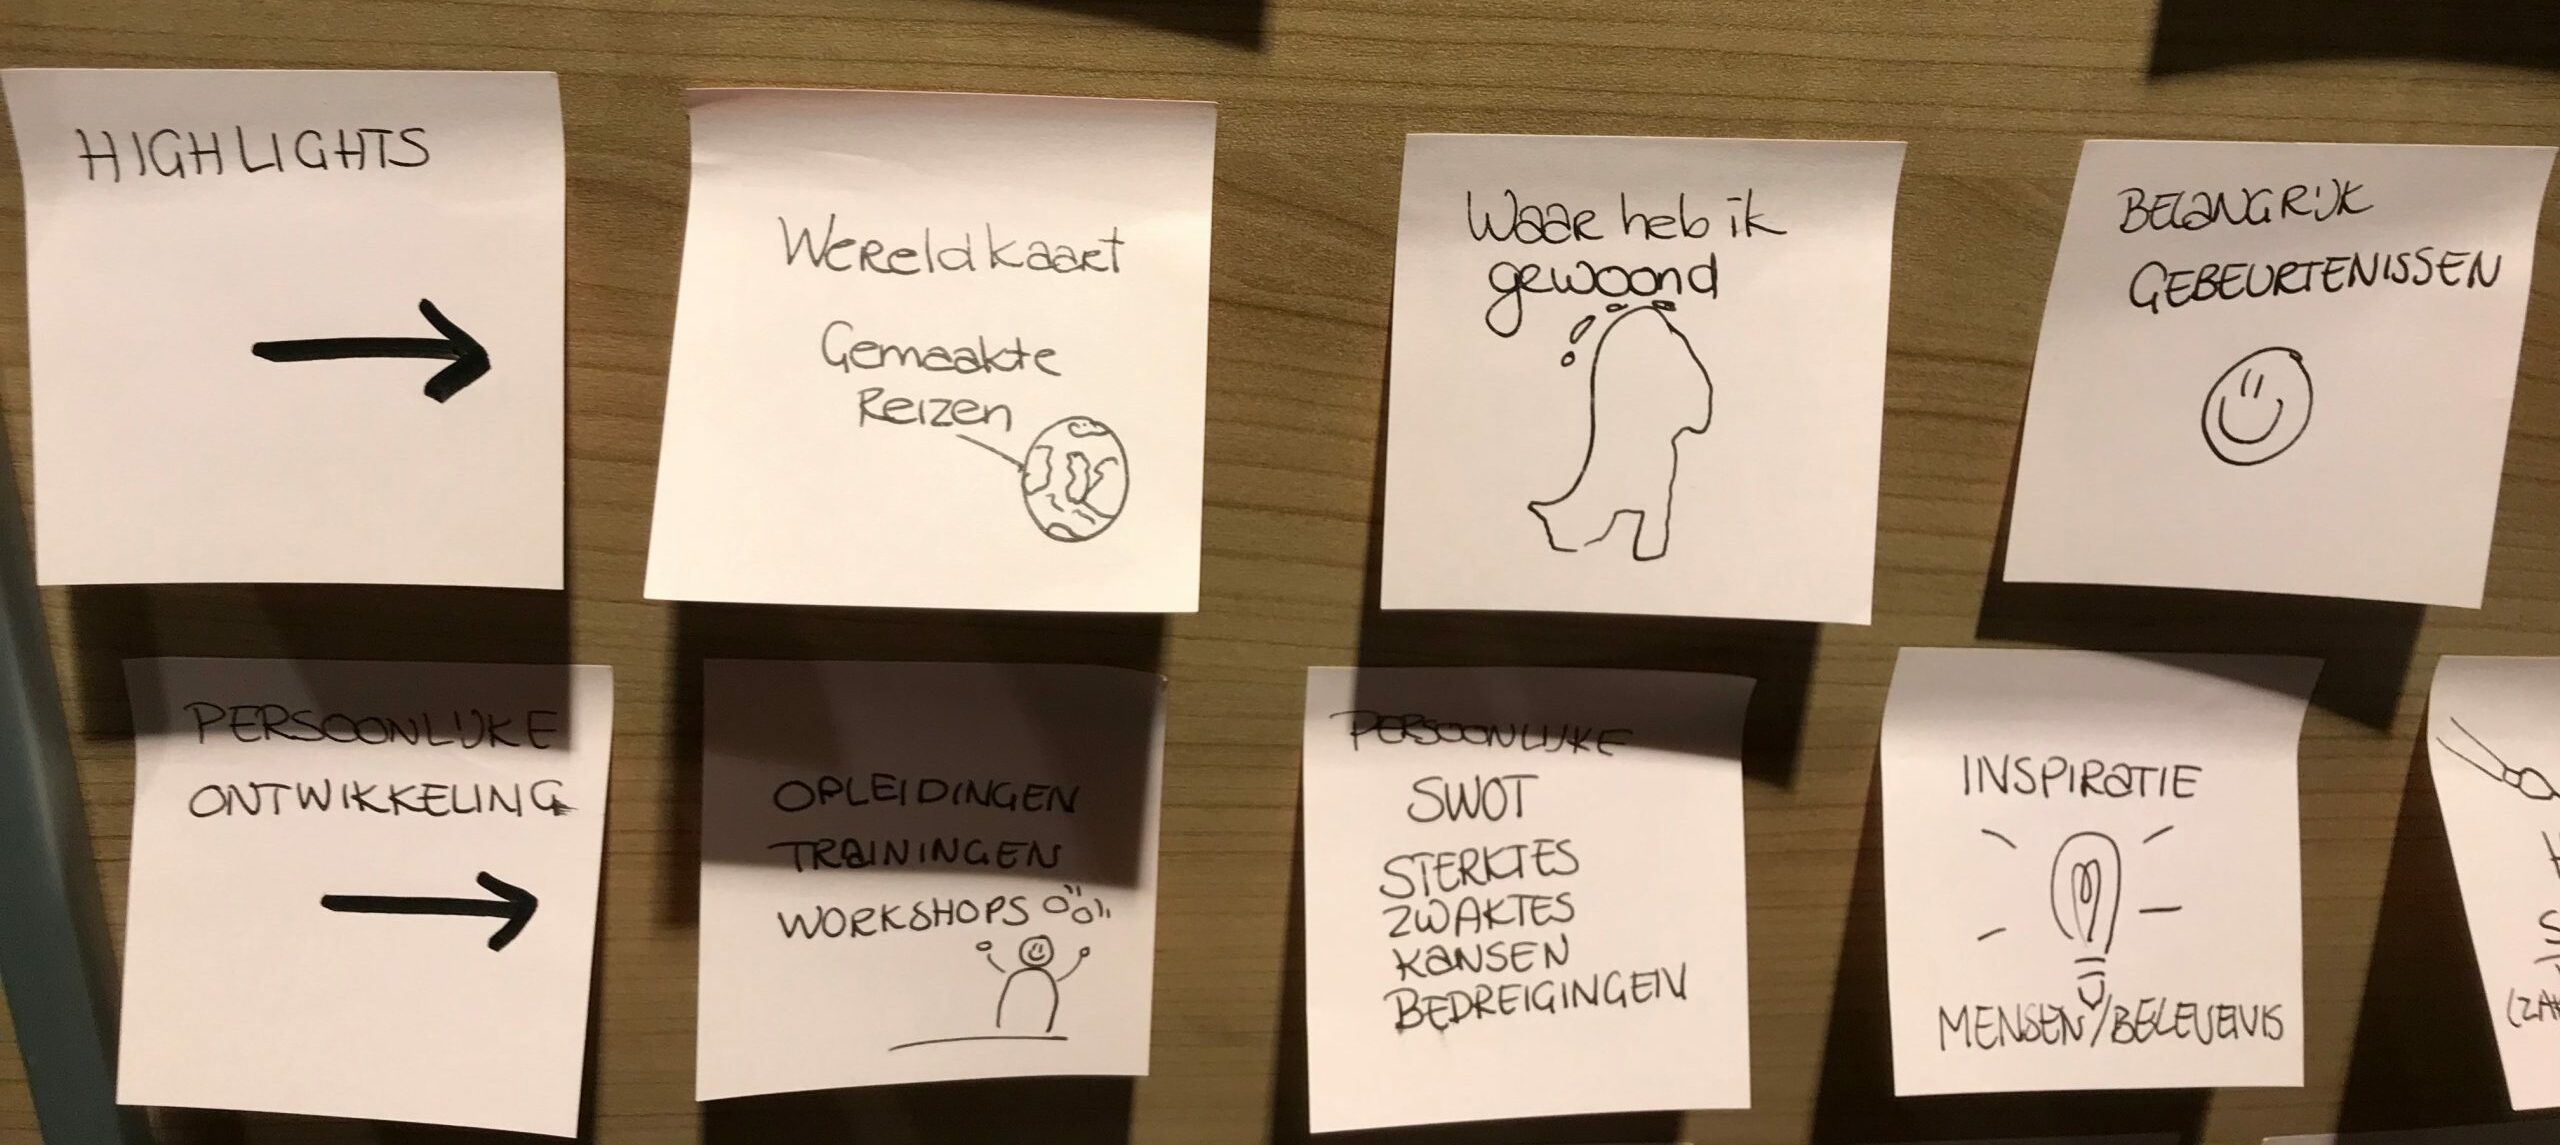 HIGHLIGHTS
Wereldkaart
Gemaakte
Reizen
Waar heb ik
gewoond
BELANGRIJK
GEBEURTENISSEN
PERSOONLIJKE
ONTWIKKELING
OPLEIDINGEN
TRAININGEN
WORKSHOPS
PERSOONLIJKE
SWOT
STERKTES
ZWAKTES
KANSEN
BEDREIGINGEN
INSPIRATIE
MENSEN/BELEVENIS